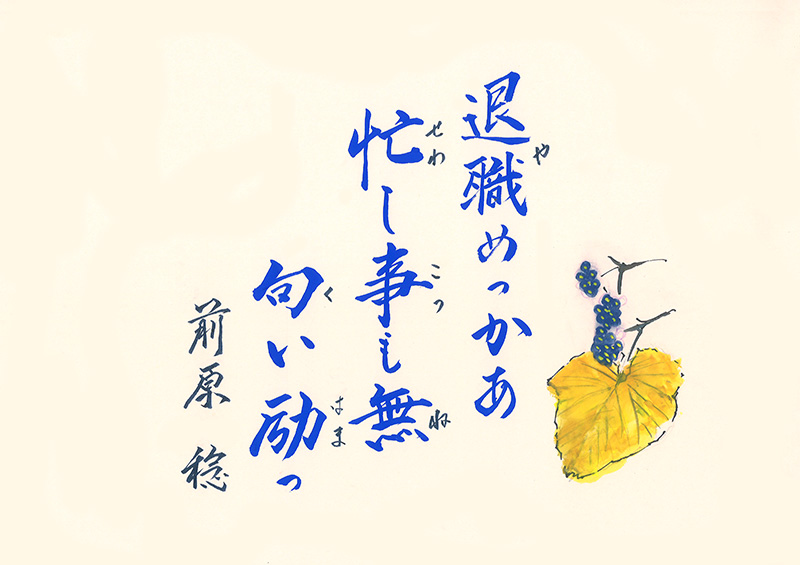 退職めっかあ
や
忙し事も無
せわ こっ ね
句い励っ
く はま
前原 稔